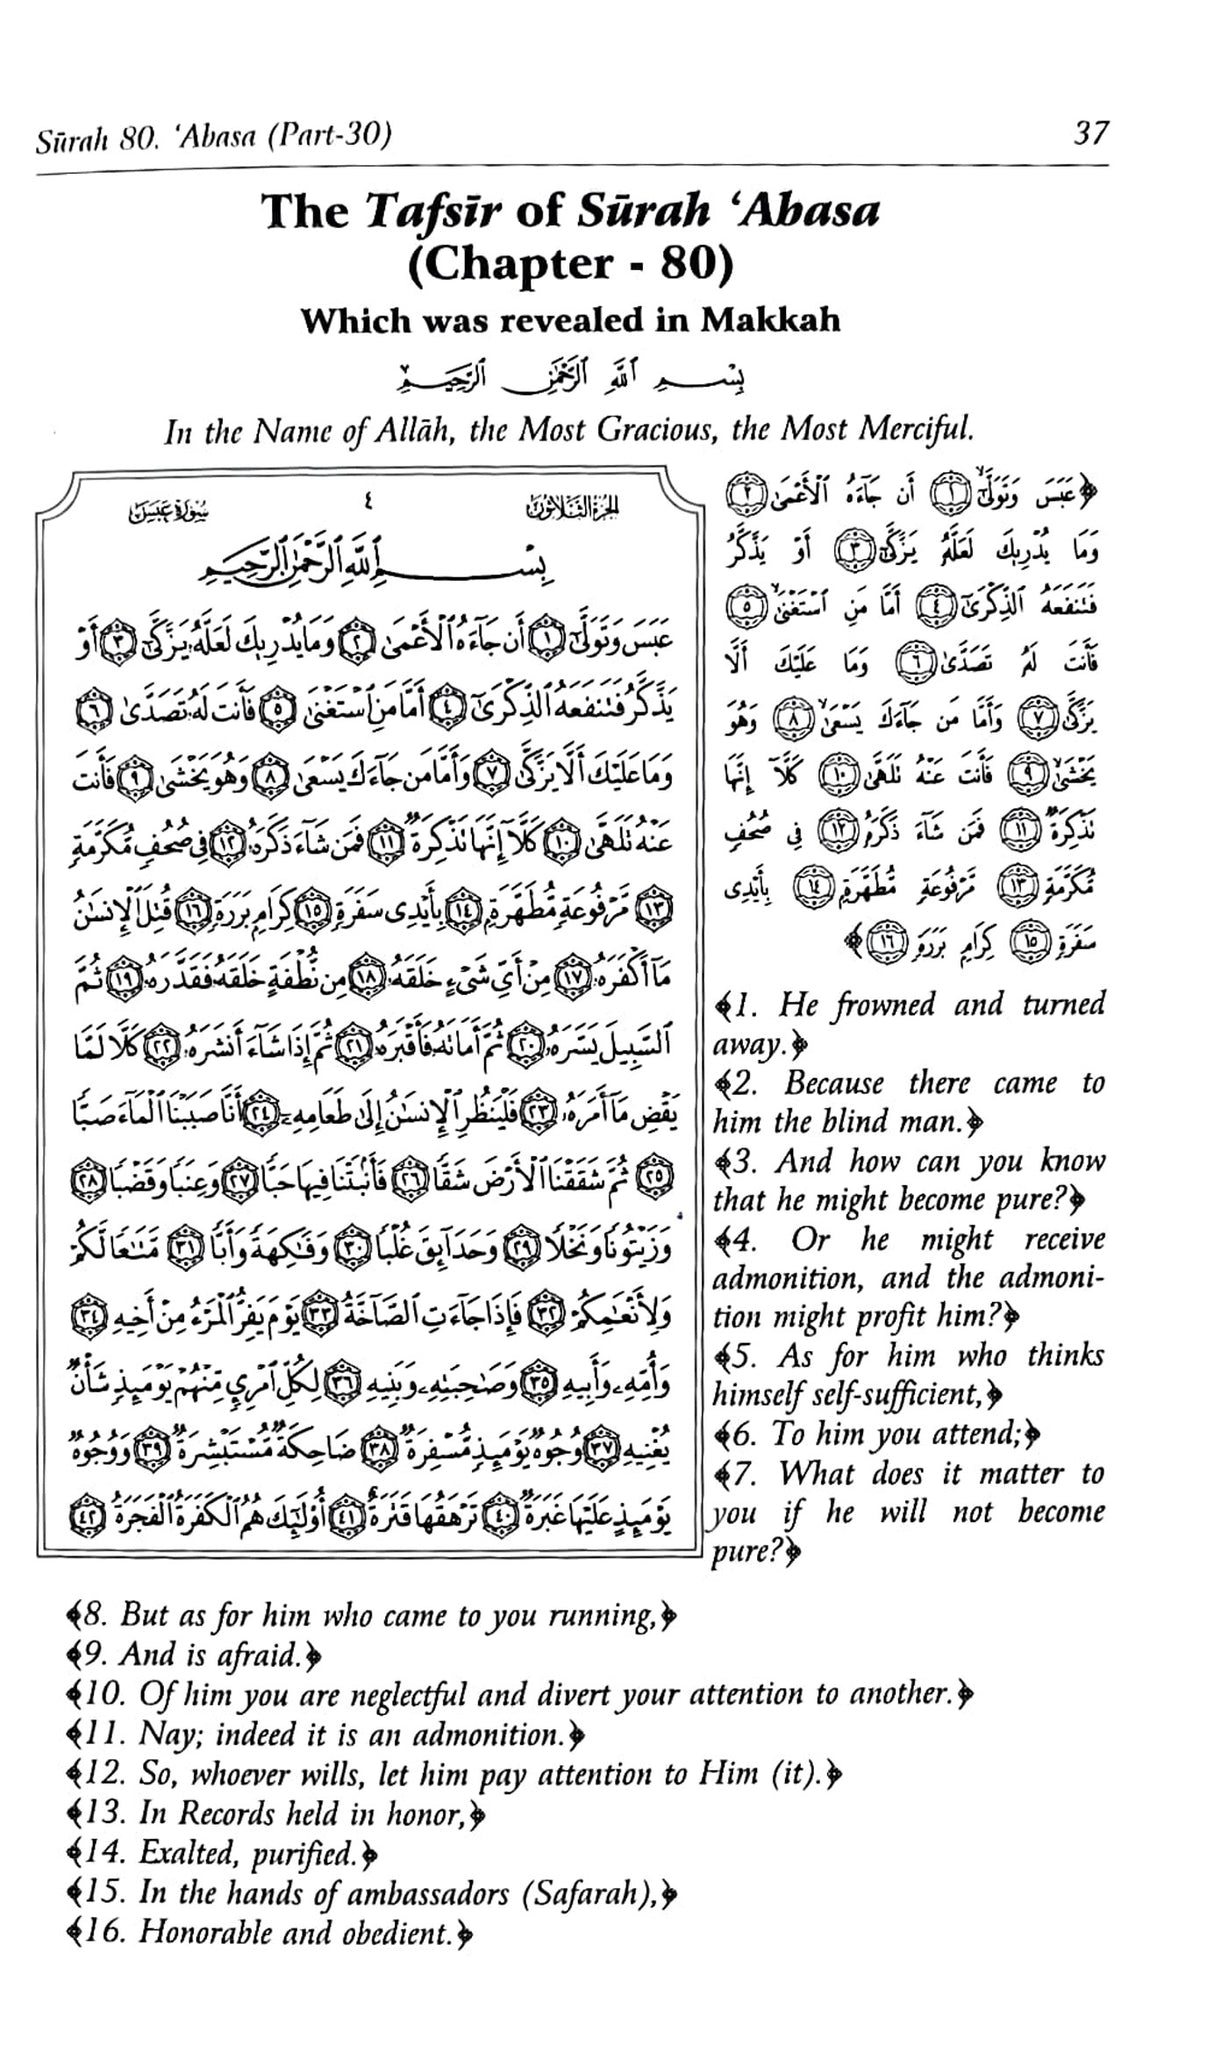 Sūrah 80. ‘Abasa (Part-30)
37
The Tafsīr of Sūrah ‘Abasa
(Chapter - 80)
Which was revealed in Makkah
بِسْمِ ٱللَّهِ ٱلرَّحْمَٰنِ ٱلرَّحِيمِ
In the Name of Allāh, the Most Gracious, the Most Merciful.
الجزء الثلاثون
٤
سورة عبس
بِسْمِ ٱللَّهِ ٱلرَّحْمَٰنِ ٱلرَّحِيمِ
عَبَسَ وَتَوَلَّىٰٓ ١ أَن جَآءَهُ ٱلْأَعْمَىٰ ٢ وَمَا يُدْرِيكَ لَعَلَّهُۥ يَزَّكَّىٰٓ ٣ أَوْ
يَذَّكَّرُ فَتَنفَعَهُ ٱلذِّكْرَىٰٓ ٤ أَمَّا مَنِ ٱسْتَغْنَىٰ ٥ فَأَنتَ لَهُۥ تَصَدَّىٰ ٦
وَمَا عَلَيْكَ أَلَّا يَزَّكَّىٰ ٧ وَأَمَّا مَن جَآءَكَ يَسْعَىٰ ٨ وَهُوَ يَخْشَىٰ ٩ فَأَنتَ
عَنْهُ تَلَهَّىٰ ١٠ كَلَّآ إِنَّهَا تَذْكِرَةٌ ١١ فَمَن شَآءَ ذَكَرَهُۥ ١٢ فِى صُحُفٍ مُّكَرَّمَةٍ
١٣ مَّرْفُوعَةٍ مُّطَهَّرَةٍۭ ١٤ بِأَيْدِى سَفَرَةٍ ١٥ كِرَامٍۭ بَرَرَةٍ ١٦ قُتِلَ ٱلْإِنسَٰنُ
مَآ أَكْفَرَهُۥ ١٧ مِنْ أَىِّ شَىْءٍ خَلَقَهُۥ ١٨ مِن نُّطْفَةٍ خَلَقَهُۥ فَقَدَّرَهُۥ ١٩ ثُمَّ
ٱلسَّبِيلَ يَسَّرَهُۥ ٢٠ ثُمَّ أَمَاتَهُۥ فَأَقْبَرَهُۥ ٢١ ثُمَّ إِذَا شَآءَ أَنشَرَهُۥ ٢٢ كَلَّا لَمَّا
يَقْضِ مَآ أَمَرَهُۥ ٢٣ فَلْيَنظُرِ ٱلْإِنسَٰنُ إِلَىٰ طَعَامِهِۦٓ ٢٤ أَنَّا صَبَبْنَا ٱلْمَآءَ صَبًّا
٢٥ ثُمَّ شَقَقْنَا ٱلْأَرْضَ شَقًّا ٢٦ فَأَنۢبَتْنَا فِيهَا حَبًّا ٢٧ وَعِنَبًا وَقَضْبًا ٢٨
وَزَيْتُونًا وَنَخْلًا ٢٩ وَحَدَآئِقَ غُلْبًا ٣٠ وَفَٰكِهَةً وَأَبًّا ٣١ مَّتَٰعًا لَّكُمْ
وَلِأَنْعَٰمِكُمْ ٣٢ فَإِذَا جَآءَتِ ٱلصَّآخَّةُ ٣٣ يَوْمَ يَفِرُّ ٱلْمَرْءُ مِنْ أَخِيهِ ٣٤
وَأُمِّهِۦ وَأَبِيهِ ٣٥ وَصَٰحِبَتِهِۦ وَبَنِيهِ ٣٦ لِكُلِّ ٱمْرِئٍ مِّنْهُمْ يَوْمَئِذٍ شَأْنٌ
يُغْنِيهِ ٣٧ وُجُوهٌ يَوْمَئِذٍ مُّسْفِرَةٌ ٣٨ ضَاحِكَةٌ مُّسْتَبْشِرَةٌ ٣٩ وَوُجُوهٌ
يَوْمَئِذٍ عَلَيْهَا غَبَرَةٌ ٤٠ تَرْهَقُهَا قَتَرَةٌ ٤١ أُو۟لَٰٓئِكَ هُمُ ٱلْكَفَرَةُ ٱلْفَجَرَةُ ٤٢
﴿عَبَسَ وَتَوَلَّىٰٓ ١ أَن جَآءَهُ ٱلْأَعْمَىٰ ٢
وَمَا يُدْرِيكَ لَعَلَّهُۥ يَزَّكَّىٰٓ ٣ أَوْ يَذَّكَّرُ
فَتَنفَعَهُ ٱلذِّكْرَىٰٓ ٤ أَمَّا مَنِ ٱسْتَغْنَىٰ ٥
فَأَنتَ لَهُۥ تَصَدَّىٰ ٦ وَمَا عَلَيْكَ أَلَّا
يَزَّكَّىٰ ٧ وَأَمَّا مَن جَآءَكَ يَسْعَىٰ ٨ وَهُوَ
يَخْشَىٰ ٩ فَأَنتَ عَنْهُ تَلَهَّىٰ ١٠ كَلَّآ إِنَّهَا
تَذْكِرَةٌ ١١ فَمَن شَآءَ ذَكَرَهُۥ ١٢ فِى صُحُفٍ
مُّكَرَّمَةٍ ١٣ مَّرْفُوعَةٍ مُّطَهَّرَةٍۭ ١٤ بِأَيْدِى
سَفَرَةٍ ١٥ كِرَامٍۭ بَرَرَةٍ ١٦﴾
﴾1. He frowned and turned
away.﴿
﴾2. Because there came to
him the blind man.﴿
﴾3. And how can you know
that he might become pure?﴿
﴾4. Or he might receive
admonition, and the admoni-
tion might profit him?﴿
﴾5. As for him who thinks
himself self-sufficient,﴿
﴾6. To him you attend;﴿
﴾7. What does it matter to
you if he will not become
pure?﴿
﴾8. But as for him who came to you running,﴿
﴾9. And is afraid.﴿
﴾10. Of him you are neglectful and divert your attention to another.﴿
﴾11. Nay; indeed it is an admonition.﴿
﴾12. So, whoever wills, let him pay attention to Him (it).﴿
﴾13. In Records held in honor,﴿
﴾14. Exalted, purified.﴿
﴾15. In the hands of ambassadors (Safarah),﴿
﴾16. Honorable and obedient.﴿